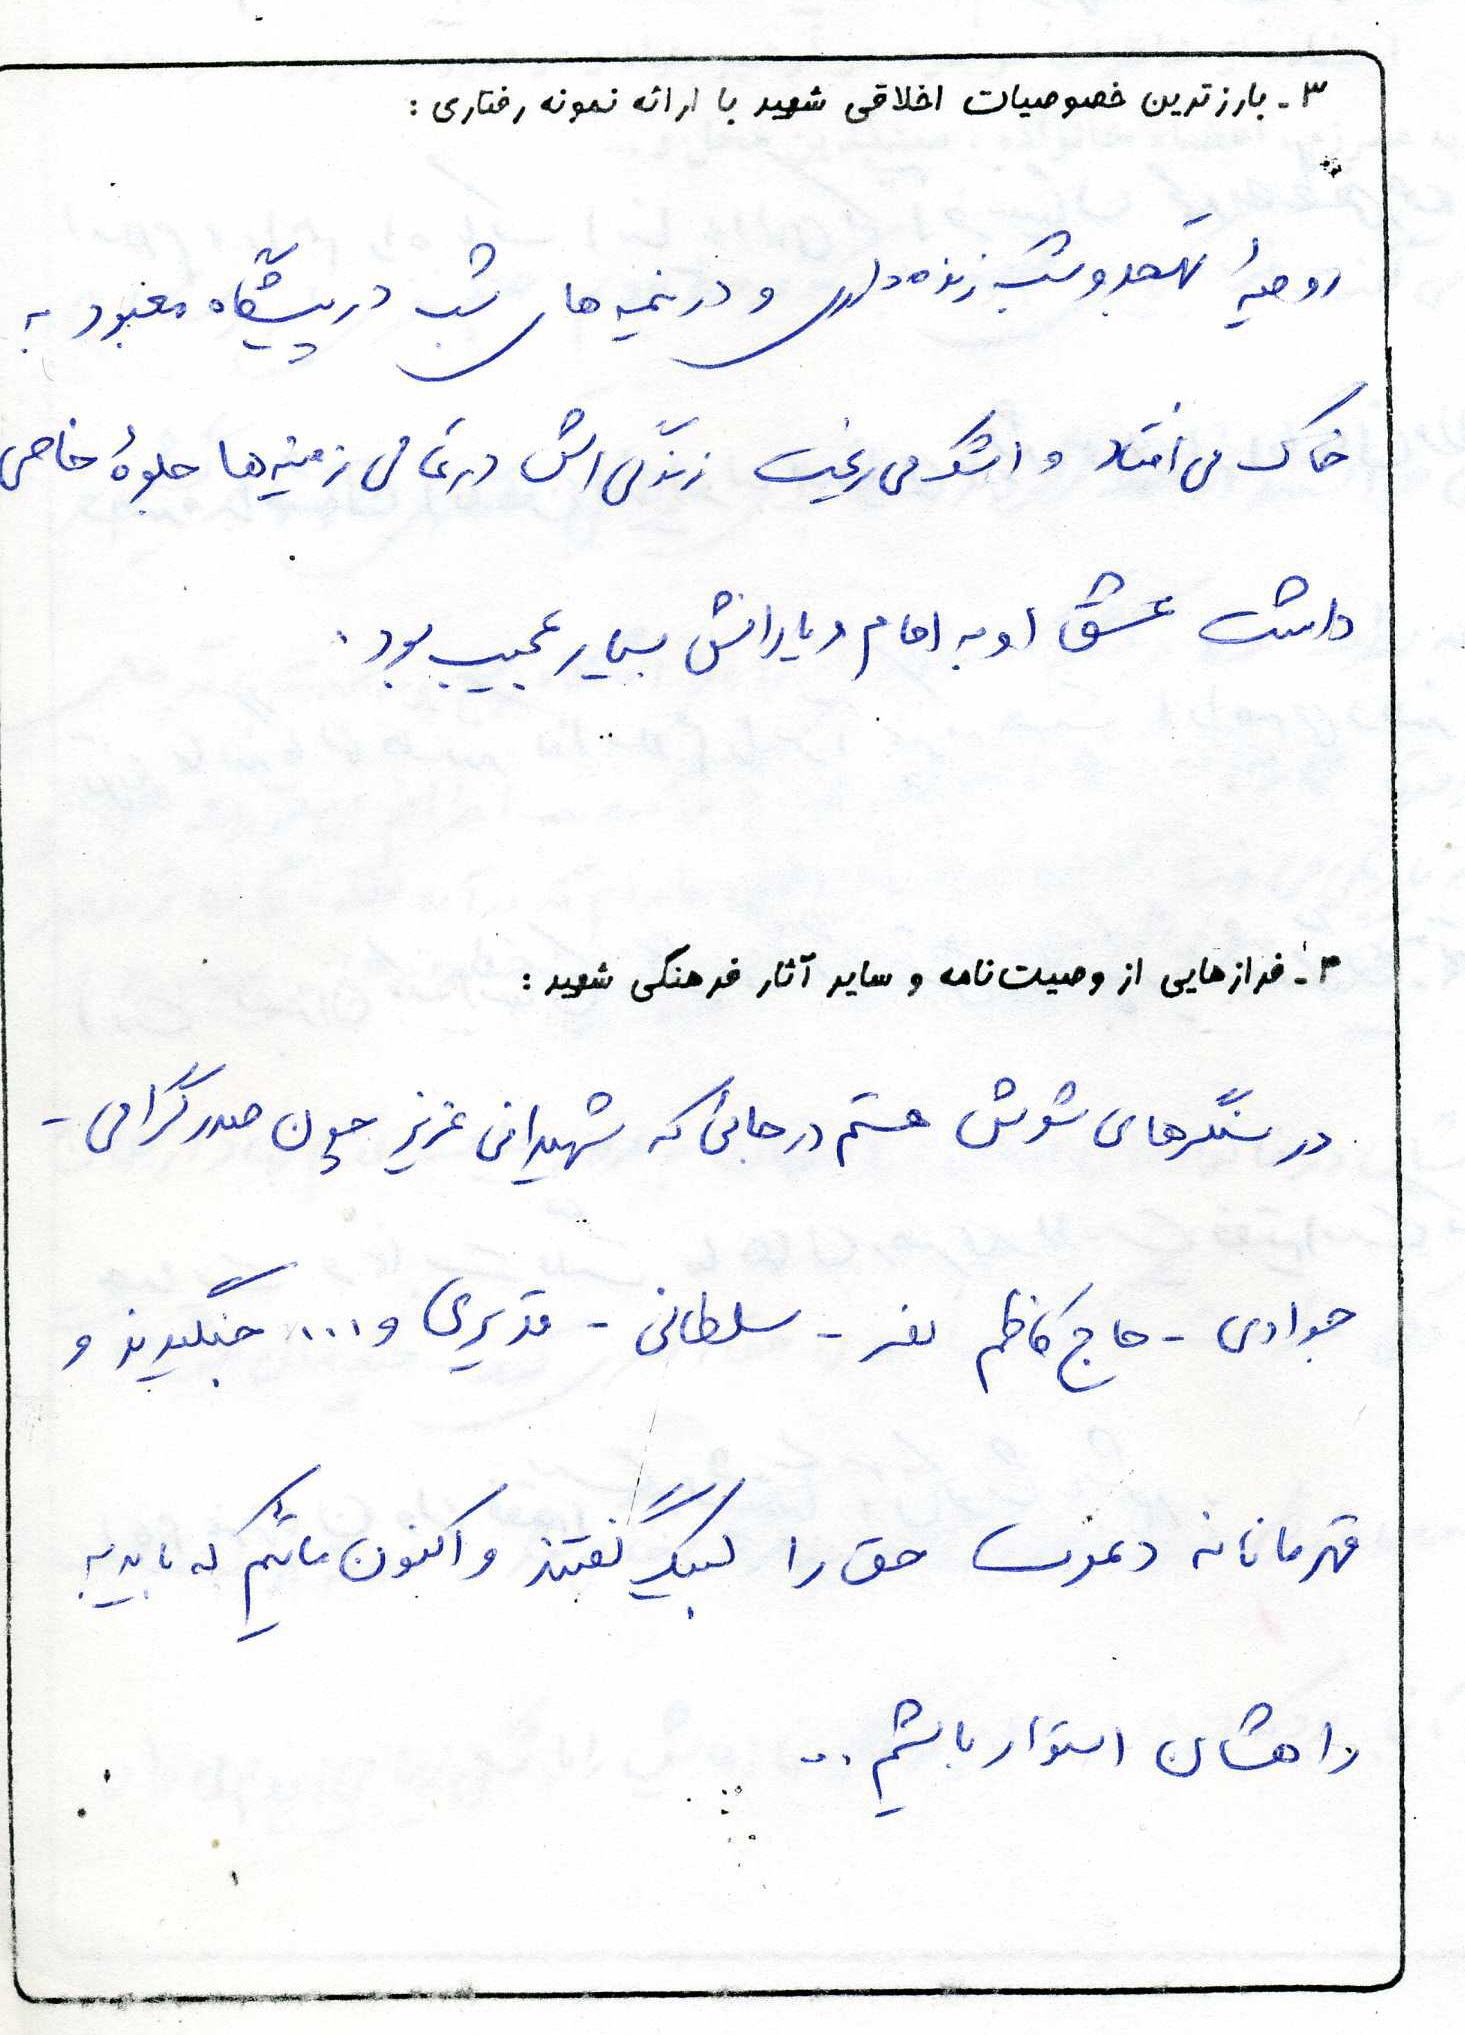 ۳- بارزترین خصوصیات اخلاقی شهید با ارائه نمونه رفتاری :
روحیهٔ تهجد و شب زنده داری و در نیمه های شب در پیشگاه معبود به
خاک می افتاد و اشک می ریخت زندگی اش در تمامی زمینه ها جلوهٔ خاصی
داشت عشق او به امام و یارانش بسیار عجیب بود .
۴- فرازهایی از وصیت نامه و سایر آثار فرهنگی شهید :
در سنگرهای شوش هستم در جائی که شهیدانی عزیز چون صدر گرامی -
جوادی - حاج کاظم - سلطانی - قدیری و ... جنگیدند و
قهرمانانه دعوت حق را لبیک گفتند و اکنون مائیم که باید به
راهشان استوار باشیم ...